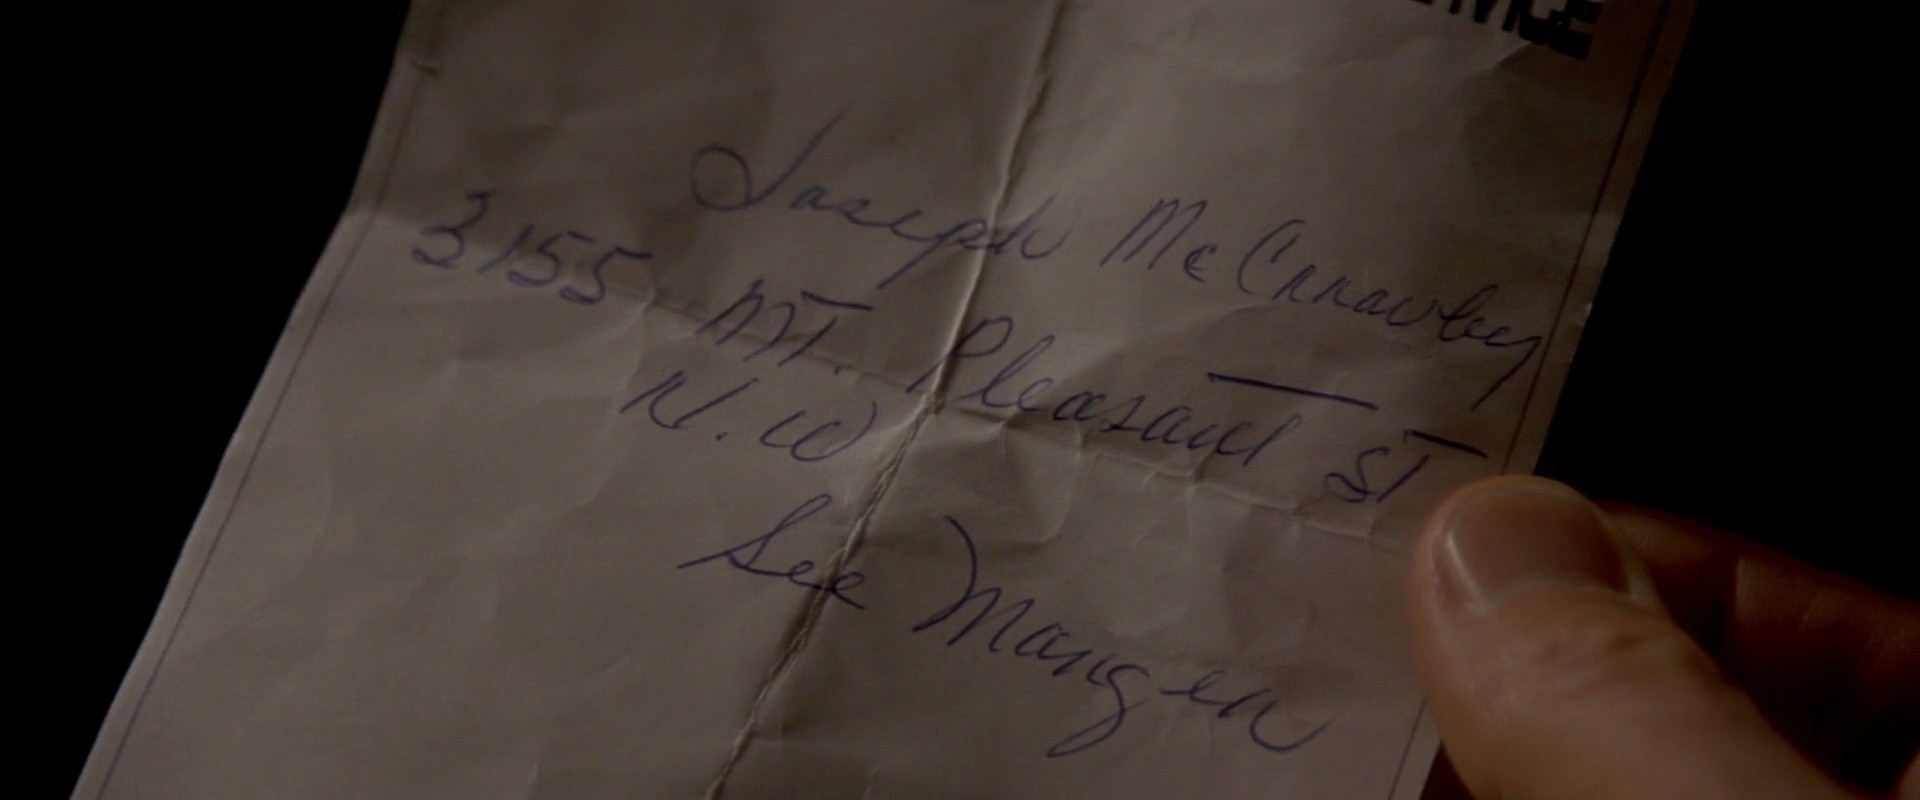 Joseph McCrrawley
3155 MT. Pleasant ST
N.W
See Mangen